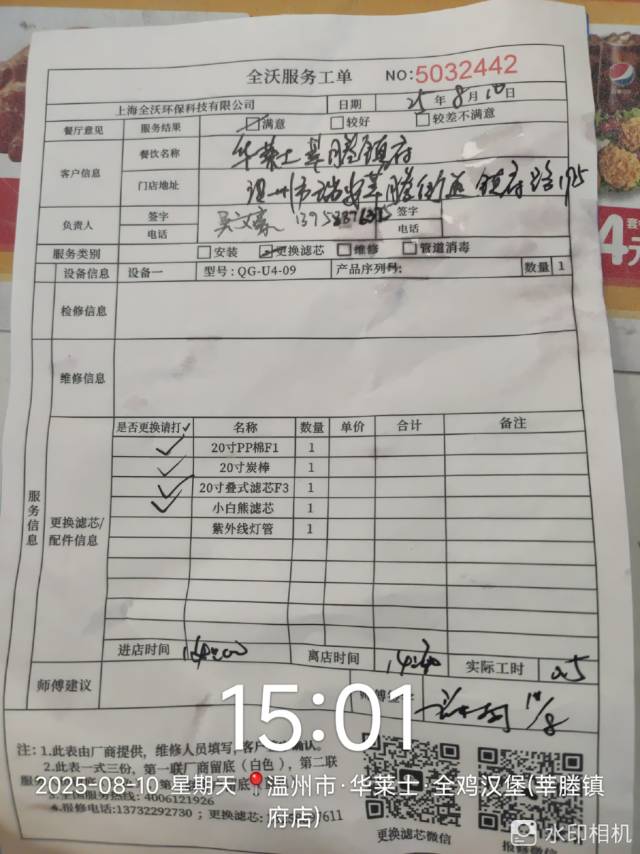 全沃服务工单 NO:5032442
上海全沃环保科技有限公司 日期 25年8月10日
餐厅意见 服务结果 满意 较好 较差不满意
客户信息 餐饮名称 华莱士莘塍镇府
门店地址 温州市瑞安莘塍街道镇府路195
负责人 签字 签字
电话 电话
服务类别 安装 更换滤芯 维修 管道消毒
设备信息 设备一 型号:QG-U4-09 产品序列号: 数量 1
检修信息
维修信息
服务信息
更换滤芯/配件信息
是否更换请打✓ 名称 数量 单价 合计 备注
✓ 20寸PP棉F1 1
✓ 20寸炭棒 1
✓ 20寸叠式滤芯F3 1
✓ 小白熊滤芯 1
紫外线灯管 1
进店时间 离店时间 实际工时
师傅建议
15:01
注：1.此表由厂商提供，维修人员填写，客户
2.此表一式三份，第一联厂商留底（白色），第二联
2025-08-10 星期天 温州市·华莱士·全鸡汉堡(莘塍镇府店)
服务热线: 4006121926
4.报修电话:13732292730；更换滤芯: 7611
更换滤芯微信 报修微信
水印相机
4元